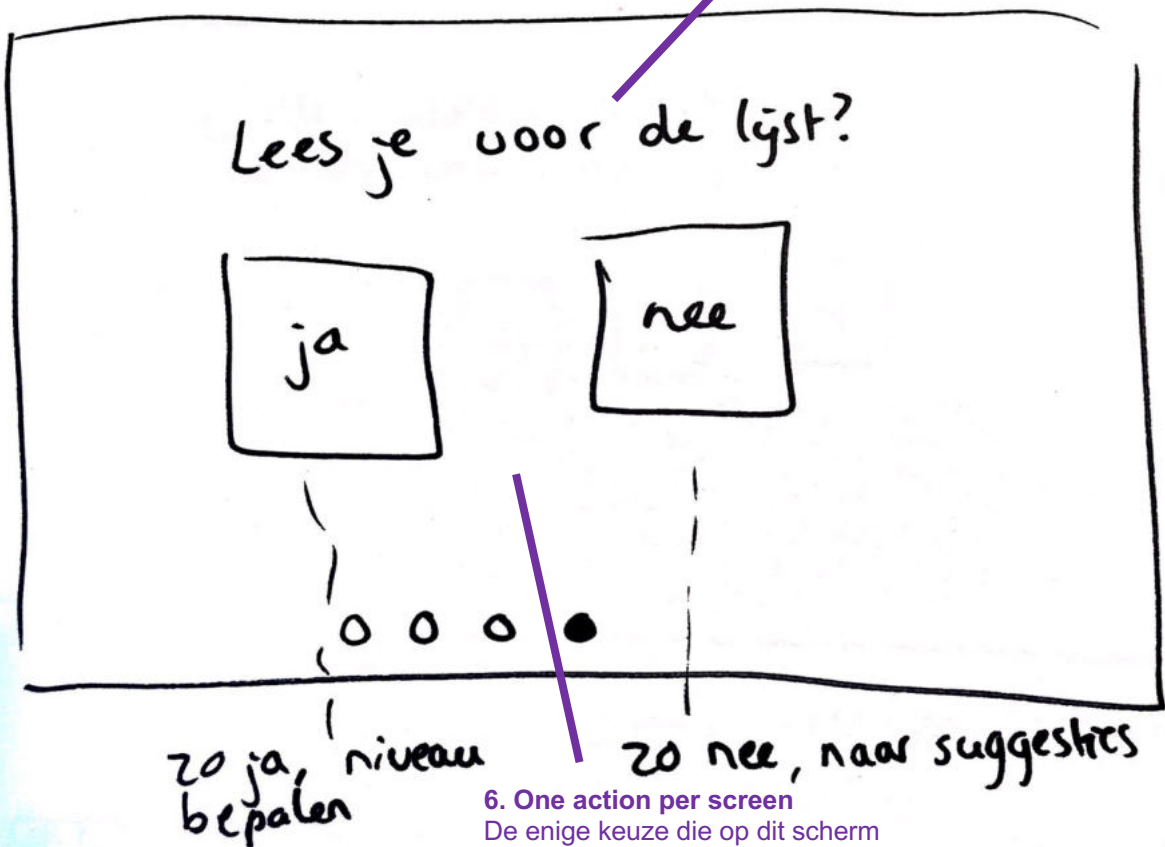 Lees je voor de lijst?
ja
nee
zo ja, niveau
bepalen
zo nee, naar suggesties
6. One action per screen
De enige keuze die op dit scherm